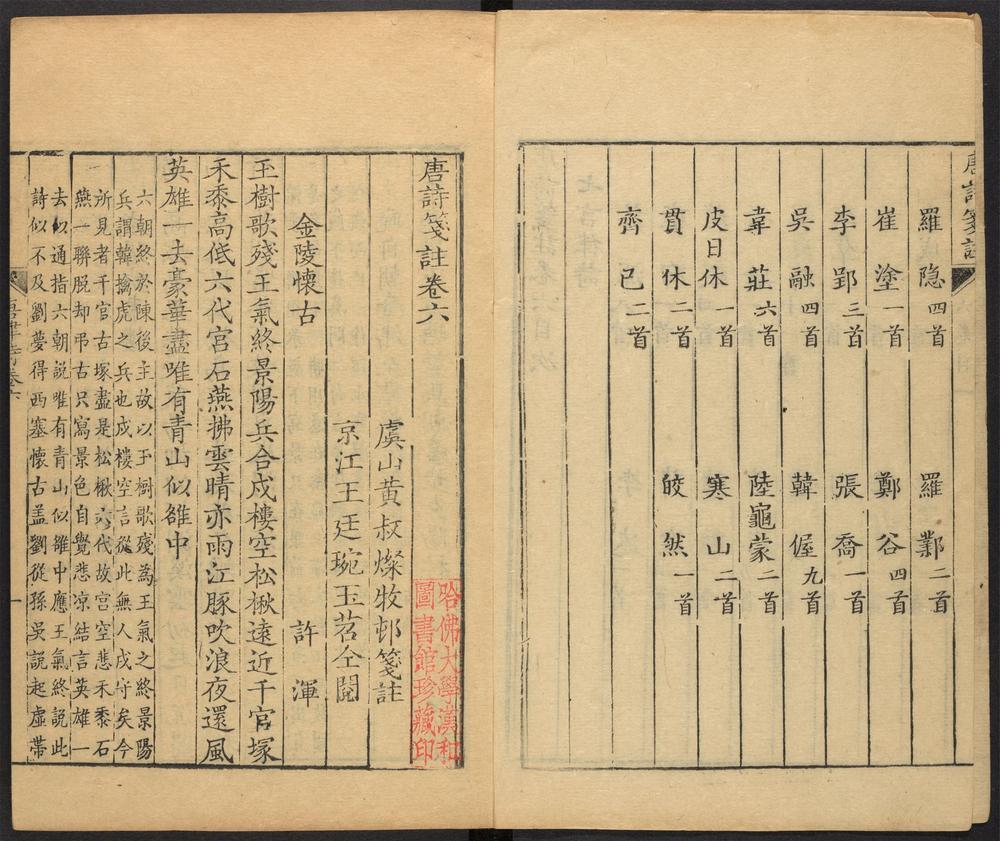 唐詩箋註
羅隱四首 羅鄴二首
崔塗一首 鄭谷四首
李郢三首 張喬一首
吳融四首 韓偓九首
韋莊六首 陸龜蒙二首
皮日休一首 寒山二首
貫休二首 皎然一首
齊己二首
唐詩箋註卷六
虞山黃叔燦牧邨箋註
京江王廷琬玉茗仝閱
金陵懷古 許渾
玉樹歌殘王氣終景陽兵合戍樓空松楸遠近千官塚
禾黍高低六代宮石燕拂雲晴亦雨江豚吹浪夜還風
英雄一去豪華盡唯有青山似雒中
六朝終於陳後主故以玉樹歌殘為王氣之終景陽
兵謂韓擒虎之兵也戍樓空言從此無人戍守矣今
所見者千官古塚盡是松楸六代故宮空悲禾黍石
燕一聯脫却弔古只寫景色自覺悲凉結言英雄一
去似通指六朝說唯有青山似雒中應王氣終說此
詩似不及劉夢得西塞懷古盖劉從孫吳說起虛帶
卷六
一
哈佛大學漢和
圖書館珍藏印